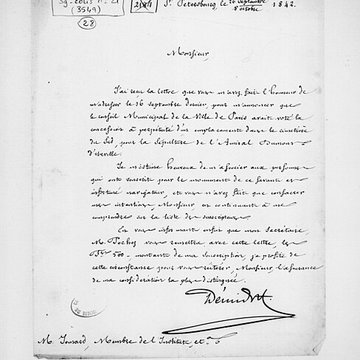 Sg. Colis n° 21
(3549)
(22)
2484
St. Petersbourg, le 20 septembre
2 octobre 1842.
Monsieur,
J'ai reçu la lettre que vous m'avez fait l'honneur de
m'adresser le 16 septembre dernier, pour m'annoncer que
le conseil Municipal de la Ville de Paris avait voté la
concession à perpétuité d'un emplacement dans le cimetière
du Sud, pour la Sépulture de l'Amiral Dumont
d'Urville.
Je m'estime heureux de m'associer aux personnes
qui ont souscrit pour le monument de ce savant et
navigateur, et vous n'avez fait que
mes intentions, Monsieur, en continuant à me
comprendre sur la liste de souscripteurs.
En vous informant enfin que mon Secrétaire
M. vous remettra avec cette lettre les
500 - montants de ma souscription, j'ai profité de
cette circonstance pour vous Monsieur, l'assurance
de ma considération la plus distinguée.
Démidoff
M. Jomard, Membre de l'Institut, etc.